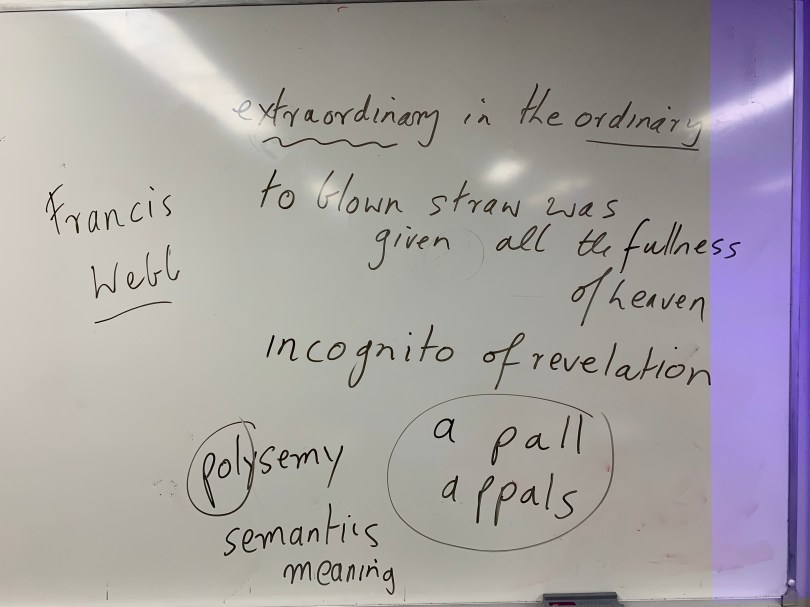 extraordinary in the ordinary
Francis
Webb
to blown straw was
given all the fullness
of heaven
incognito of revelation
polysemy
semantics
meaning
a pall
appals